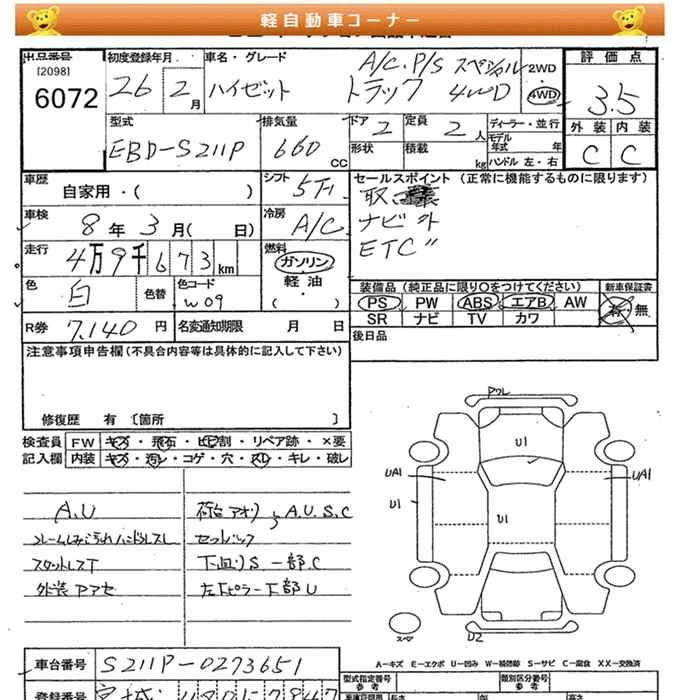 軽自動車コーナー
出品番号
[2098]
6072
初度登録年月
26 2月
車名・グレード
ハイゼット トラック 4WD
A/C.P/S スペシャル
2WD
・
4WD
評価点
3.5
外装 内装
C C
型式
EBD-S211P
排気量
660 CC
ドア 2
定員 2人
ディーラー・並行
モデル年式 年式
形状
積載 kg
ハンドル 左・右
車歴
自家用・( )
シフト
5F
車検
8年 3月( 日)
冷房
A/C
走行
4万9千673km
燃料
ガソリン・
軽油・
( )
色
白
色替
色コード
W09
R券 7,140円
名変通知期限 月 日
セールスポイント(正常に機能するものに限ります)
取
ナビ 外
ETC 〃
装備品(純正品に限り〇をつけてください)
新車保証書
PS PW ABS エアB AW
SR ナビ TV カワ
有・無
後日品
注意事項申告欄(不具合内容等は具体的に記入して下さい)
修復歴 有 [箇所 ]
検査員記入欄
FW キズ・飛石・ヒビ割・リペア跡・×要
内装 キズ・汚レ・コゲ・穴・スレ・キレ・破レ
A.U
外装
荷台アオリ A.U.S.C
セットバック
下回りS 一部C
左Fピラー下部U
U1
UA1
U1
UA1
U1
U2
A－キズ E－エクボ U－凹み W－補修跡 S－サビ C－腐食 XX－交換済
車台番号
S211P-0273651
登録番号
宮城
型式指定番号
参考
類別区分番号
参考
長さ
高さ